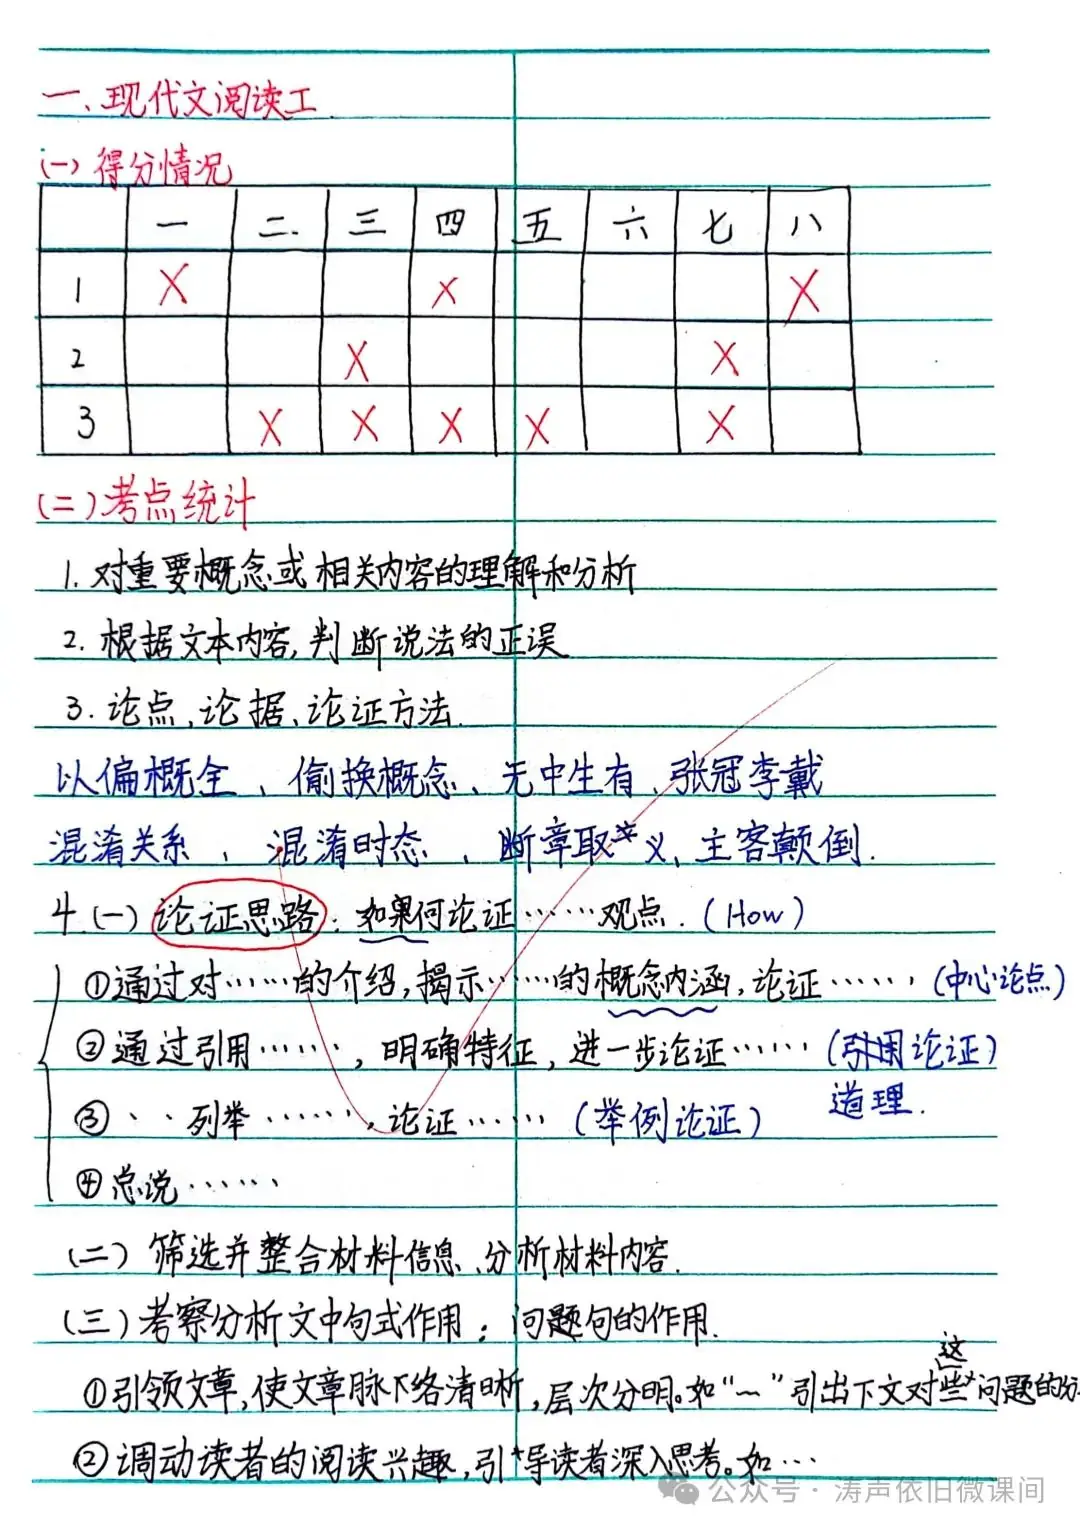 一、现代文阅读工
(一)得分情况
一 二 三 四 五 六 七 八
1 X X X
2 X X
3 X X X X X
(二)考点统计
1. 对重要概念或相关内容的理解和分析
2. 根据文本内容,判断说法的正误
3. 论点、论据、论证方法.
以偏概全、偷换概念、无中生有、张冠李戴
混淆关系、混淆时态、断章取义、主客颠倒.
4.(一)论证思路:如果何论证……观点.(How)
①通过对……的介绍,揭示……的概念内涵,论证……(中心论点)
②通过引用……,明确特征,进一步论证……(引用论证)
道理.
③··列举……,论证……(举例论证)
④总说……
(二)筛选并整合材料信息、分析材料内容.
(三)考察分析文中句式作用:问题句的作用.
这
①引领文章,使文章脉络清晰,层次分明。如“~”引出下文对些问题的
②调动读者的阅读兴趣,引导读者深入思考。如…
公众号·涛声依旧微课间